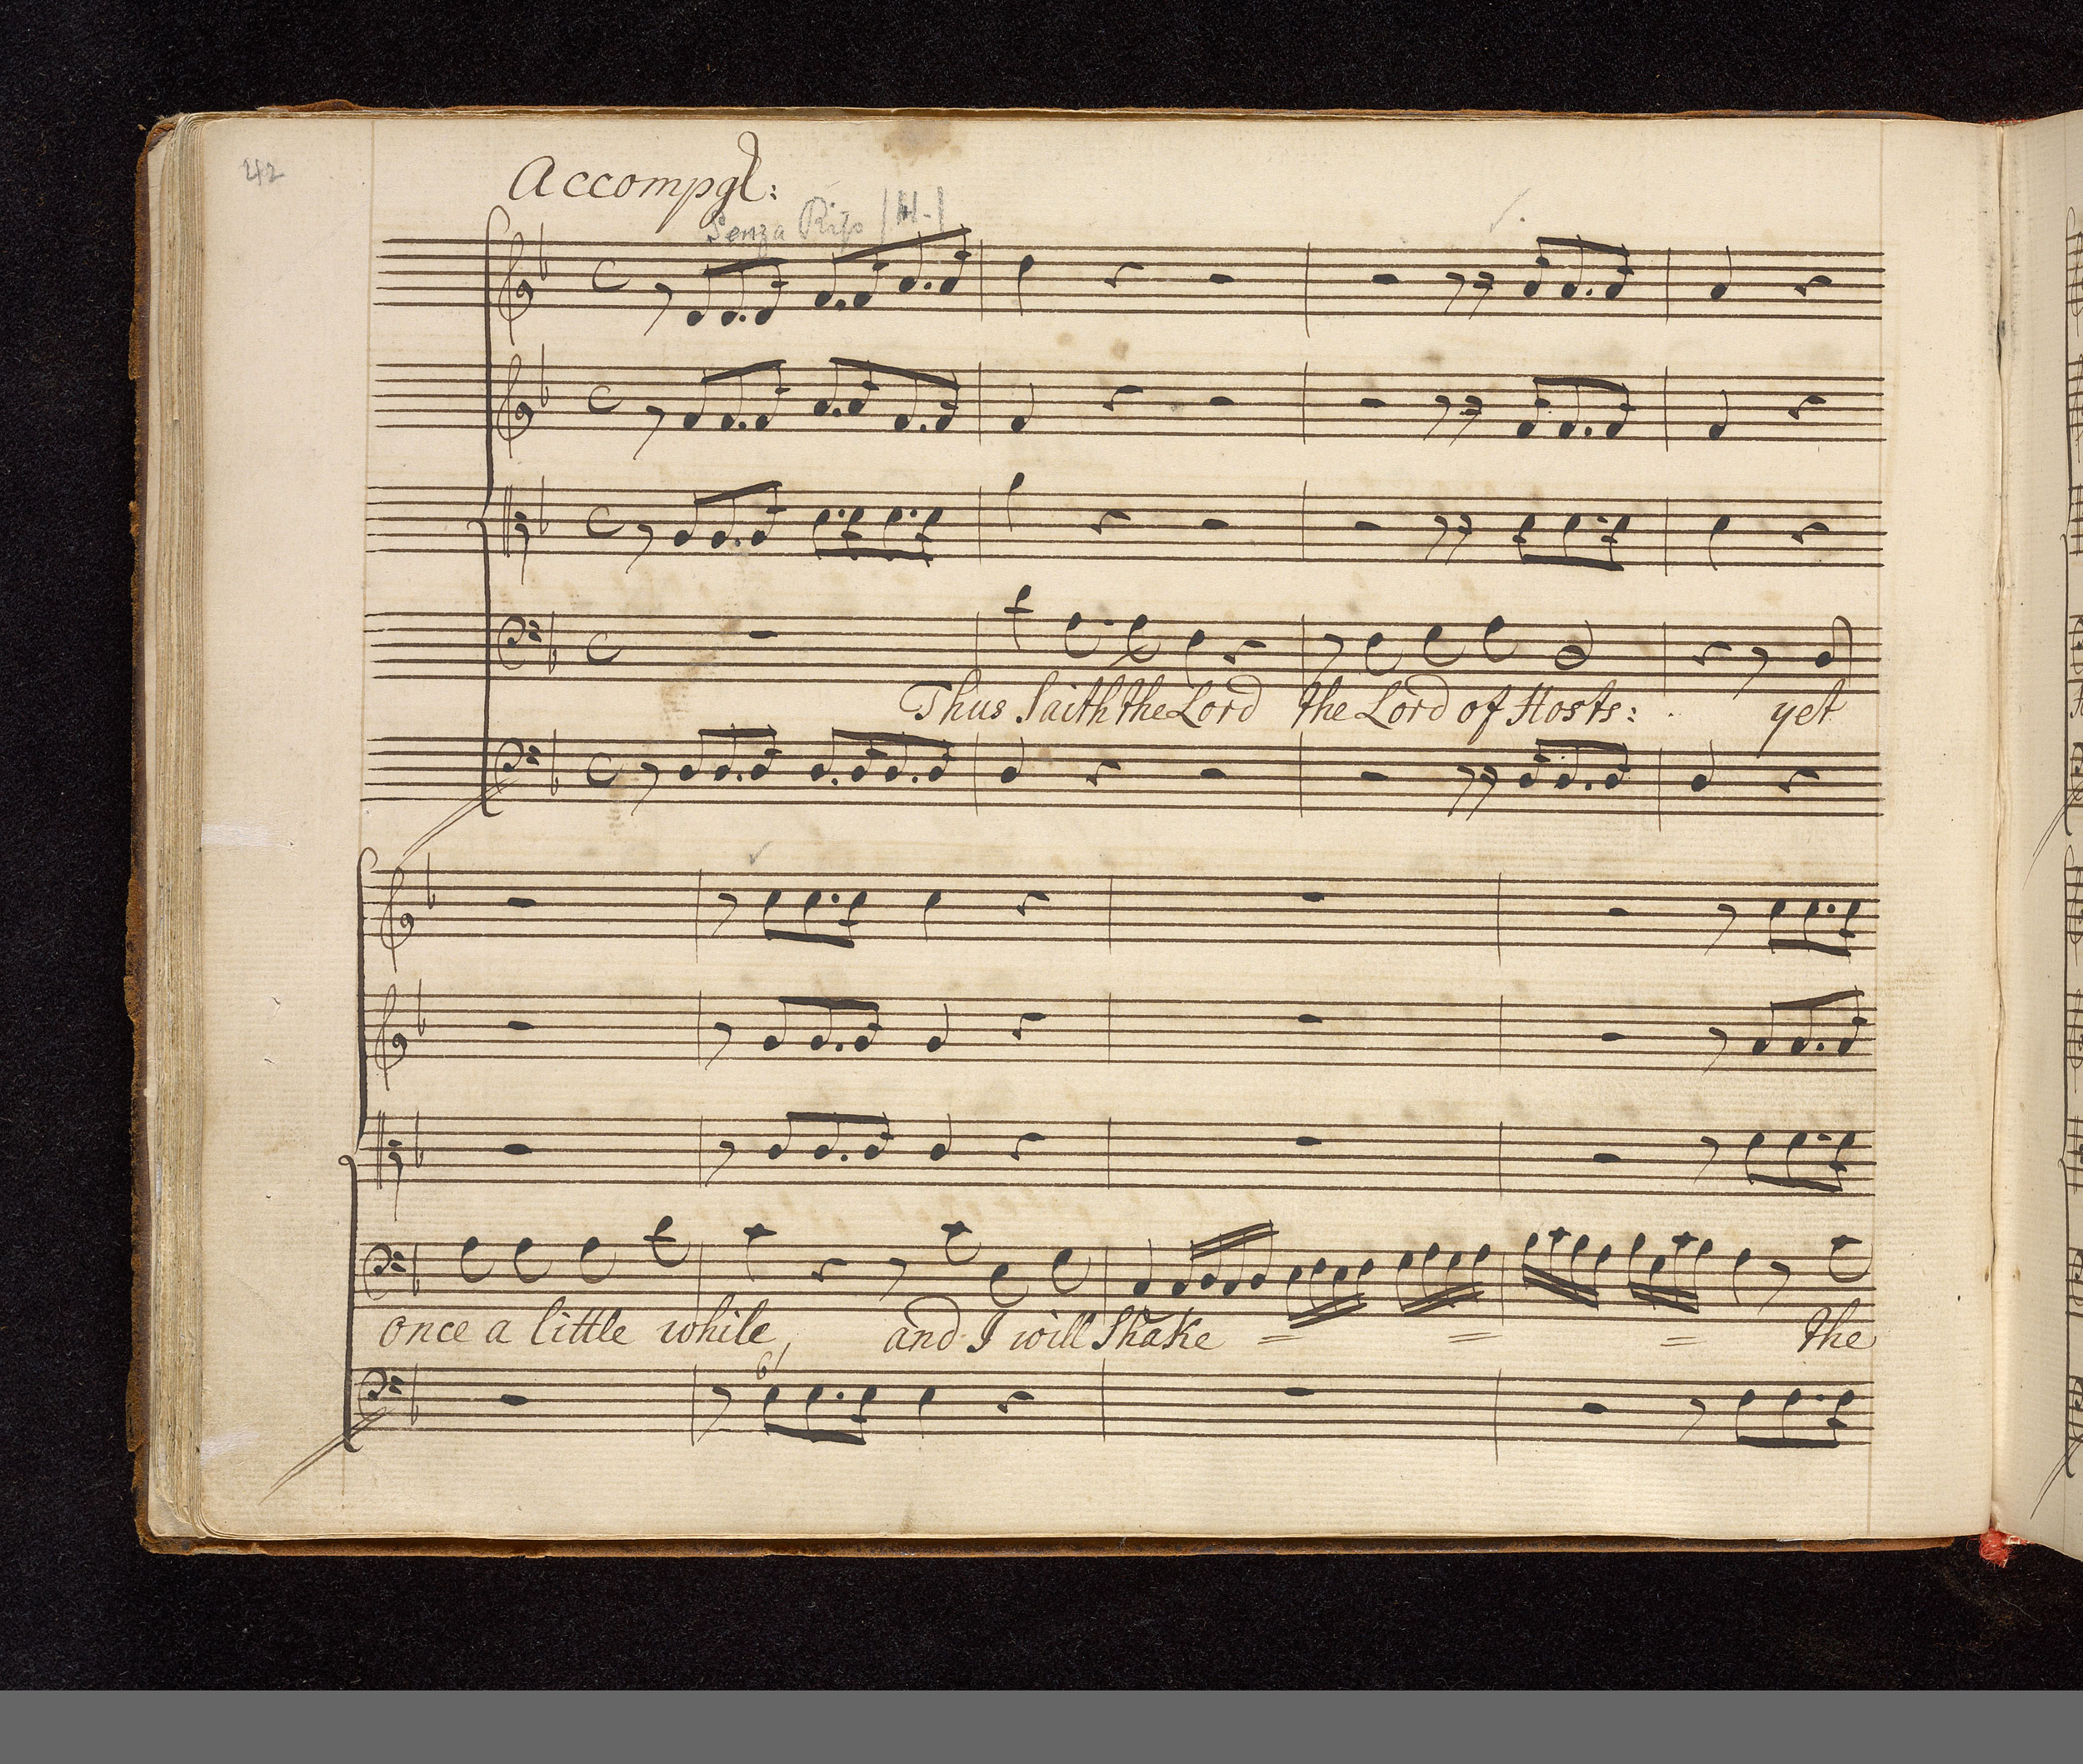 42
Accompgd:
Senza Rip
Thus saith the Lord the Lord of Hosts: yet
once a little while, and I will shake = = = the
6